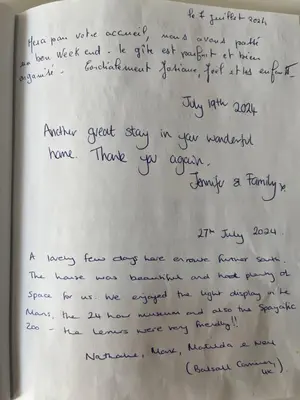 le 7 juillet 2024
Merci pour votre accueil, nous avons passé
un bon week end. le gîte est parfait et bien
organisé. Cordialement Fatiane, Joël et les enfants
July 19th 2024
Another great stay in your wonderful
home. Thank you again.
Jennifer & Family x
27th July 2024.
A lovely few days here en route further south.
The house was beautiful and had plenty of
space for us. We enjoyed the light display in Le
Mans, the 24 hour museum and also the Spaycific
Zoo - the lemurs were very friendly!!
Nathalie, Mark, Matilda &
(Balsall Common,
UK)